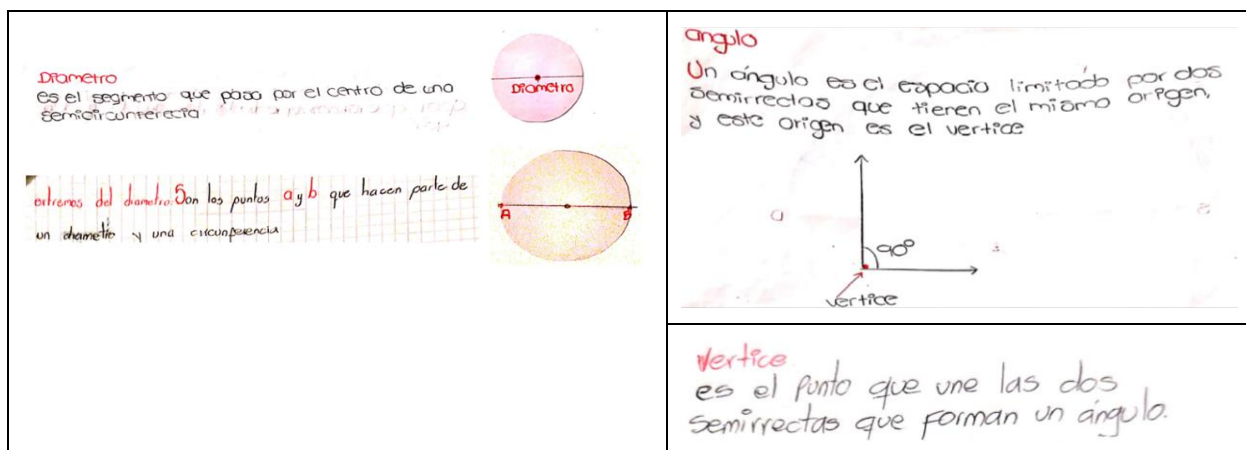 Diametro
es el segmento que pasa por el centro de una
semicircunferecia
Diametro
extremos del diametro: Son los puntos a y b que hacen parte de
un diametro y una circunferencia
A
B
angulo
Un ángulo es el espacio limitado por dos
semirrectas que tienen el mismo origen,
y este origen es el vertice
90°
vertice
Vertice
es el punto que une las dos
semirrectas que forman un ángulo.